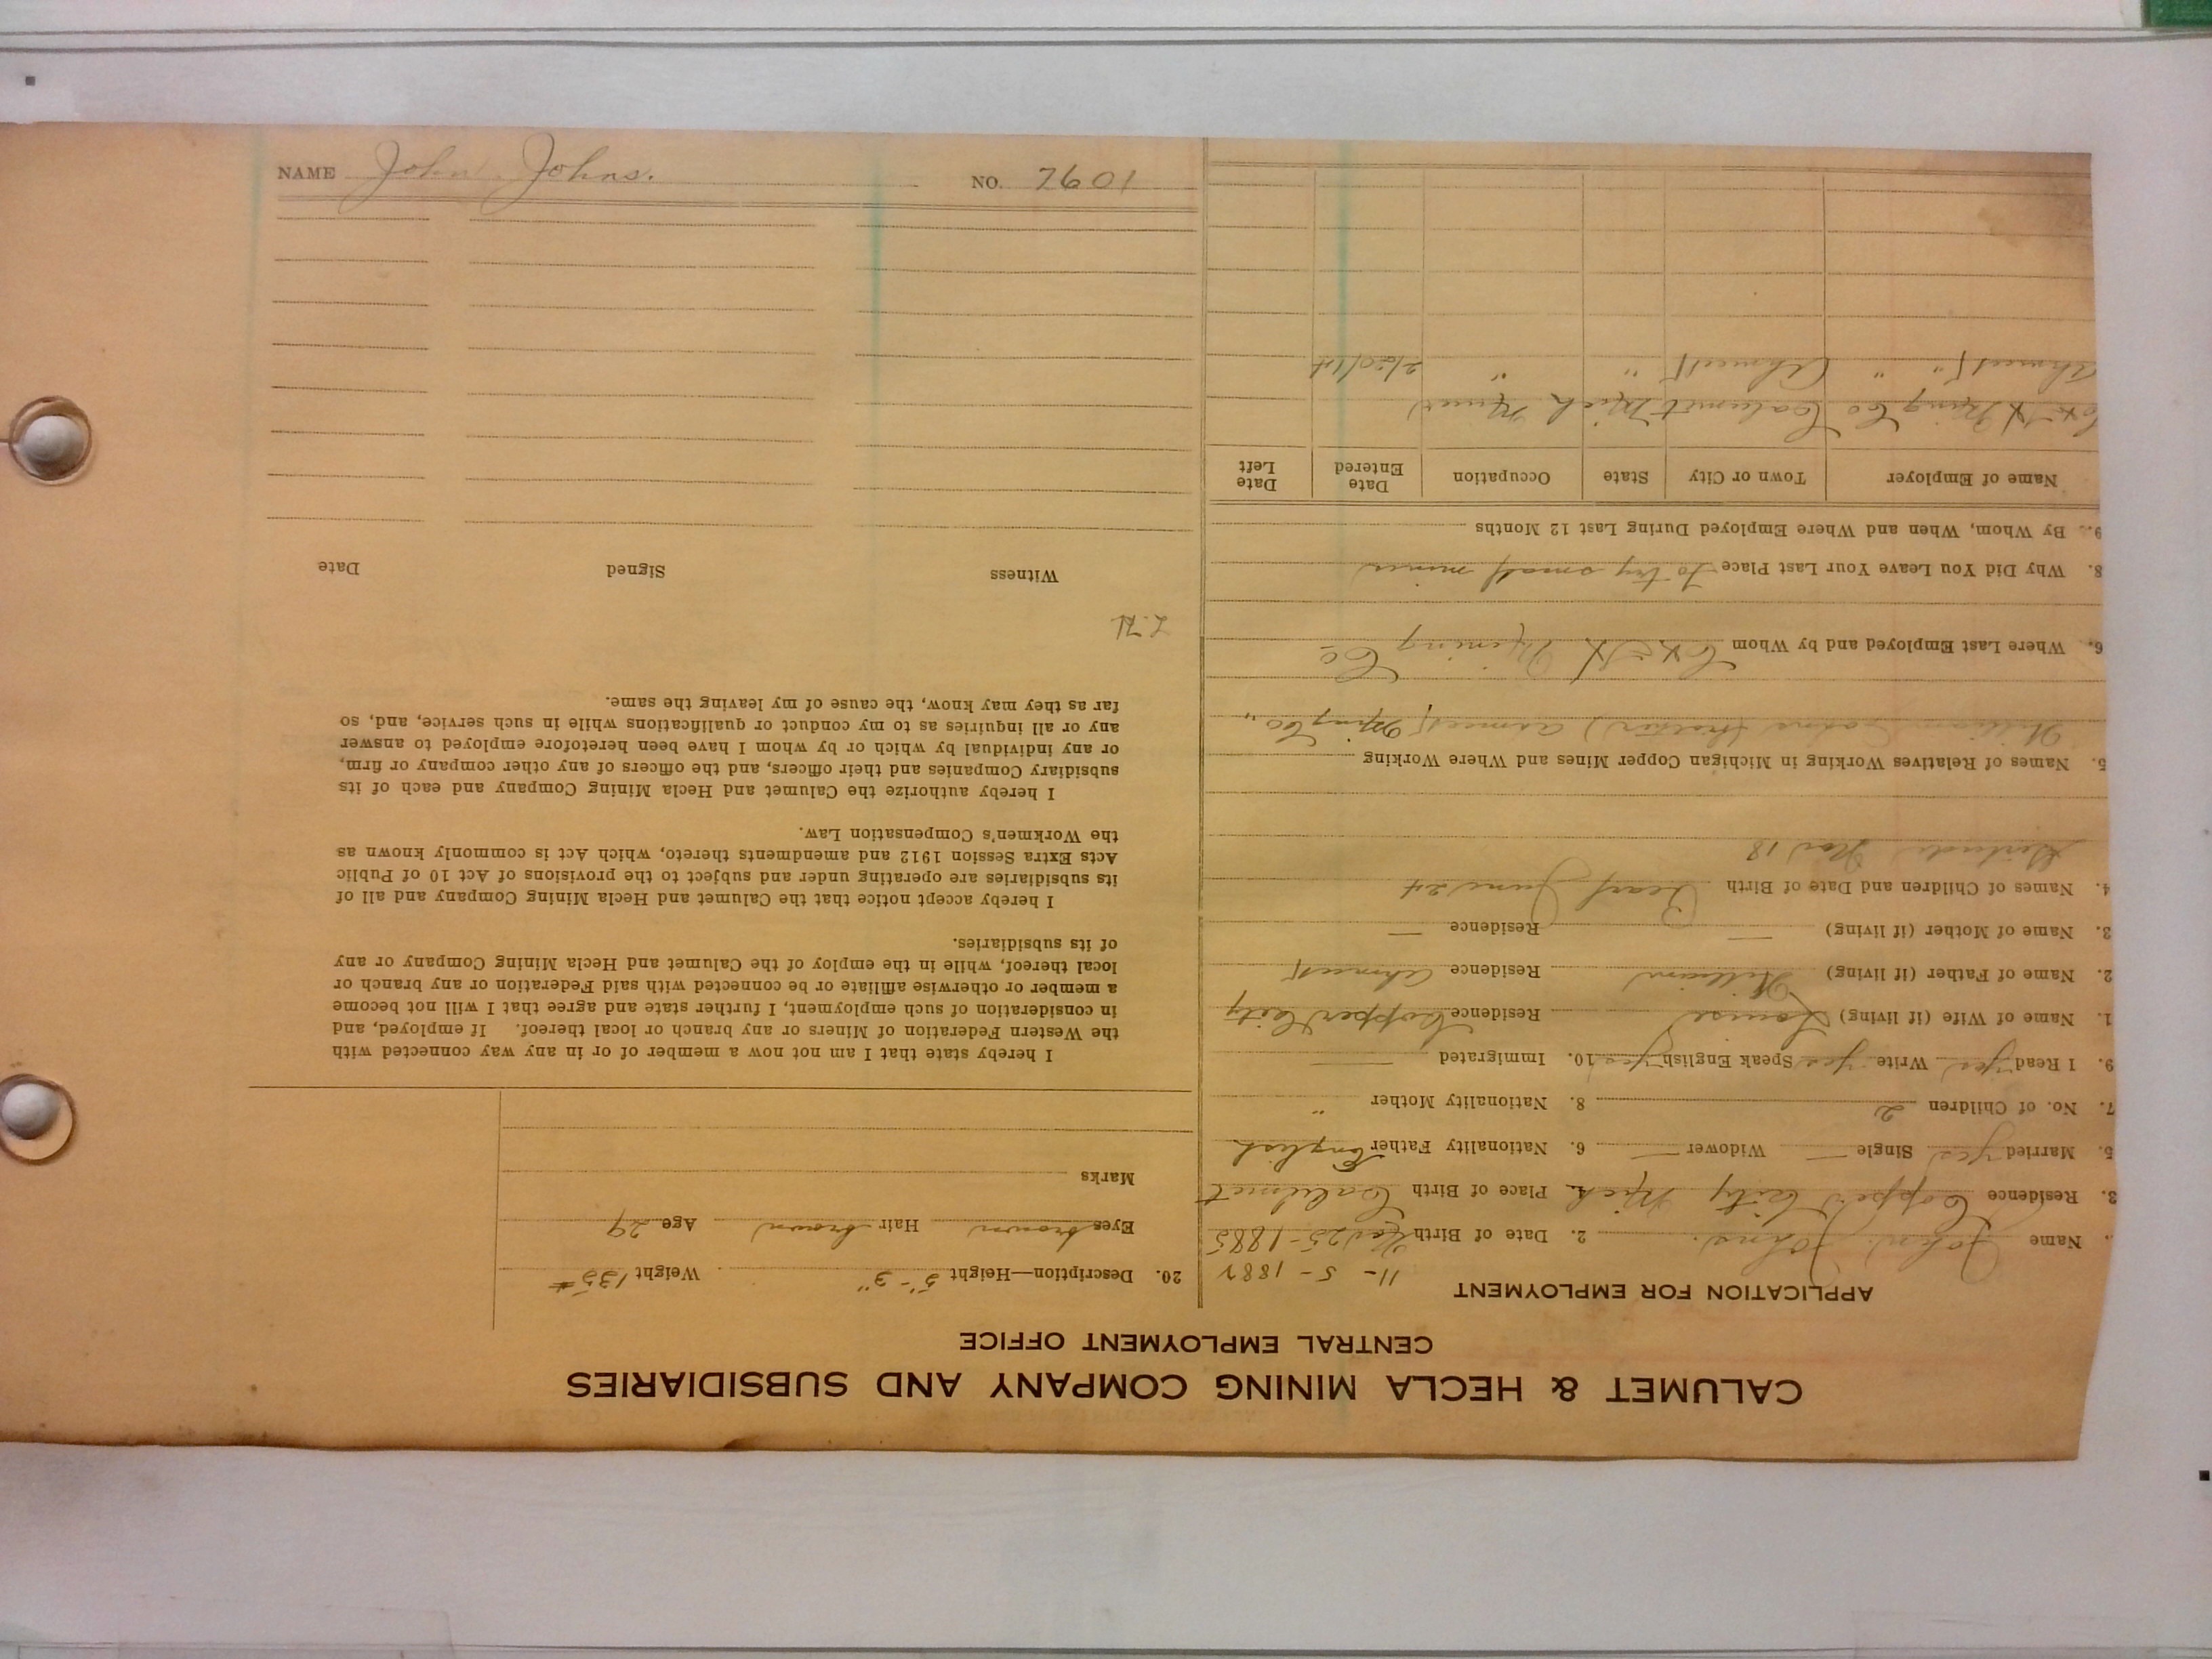 CALUMET & HECLA MINING COMPANY AND SUBSIDIARIES
CENTRAL EMPLOYMENT OFFICE
APPLICATION FOR EMPLOYMENT
11-5-1882
Name John Johns. 2. Date of Birth Nov 25-1885
3. Residence Copper City Mich 4. Place of Birth Calumet
5. Married yes Single — Widower — 6. Nationality Father English
7. No. of Children 2 8. Nationality Mother "
9. I Read yes Write yes Speak English yes 10. Immigrated —
1. Name of Wife (if living) Louise Residence Copper City
2. Name of Father (if living) William Residence Ahmeek
3. Name of Mother (if living) — Residence —
4. Names of Children and Date of Birth Pearl June 24
Gertrude Nov 18
5. Names of Relatives Working in Michigan Copper Mines and Where Working
William Johns (Brother) Ahmeek Mining Co "
6. Where Last Employed and by Whom C & H Mining Co
8. Why Did You Leave Your Last Place To try small mines
9. By Whom, When and Where Employed During Last 12 Months
Name of Employer Town or City State Occupation Date Entered Date Left
C & H Ming Co Calumet Mich Miner
Ahmeek " " Ahmeek " " 2/20/14
20. Description—Height 5'-3" Weight 135#
Eyes brown Hair brown Age 29
Marks
I hereby state that I am not now a member of or in any way connected with
the Western Federation of Miners or any branch or local thereof. If employed, and
in consideration of such employment, I further state and agree that I will not become
a member or otherwise affiliate or be connected with said Federation or any branch or
local thereof, while in the employ of the Calumet and Hecla Mining Company or any
of its subsidiaries.
I hereby accept notice that the Calumet and Hecla Mining Company and all of
its subsidiaries are operating under and subject to the provisions of Act 10 of Public
Acts Extra Session 1912 and amendments thereto, which Act is commonly known as
the Workmen's Compensation Law.
I hereby authorize the Calumet and Hecla Mining Company and each of its
subsidiary Companies and their officers, and the officers of any other company or firm,
or any individual by which or by whom I have been heretofore employed to answer
any or all inquiries as to my conduct or qualifications while in such service, and, so
far as they may know, the cause of my leaving the same.
Witness Signed Date
NAME John Johns. NO. 7601